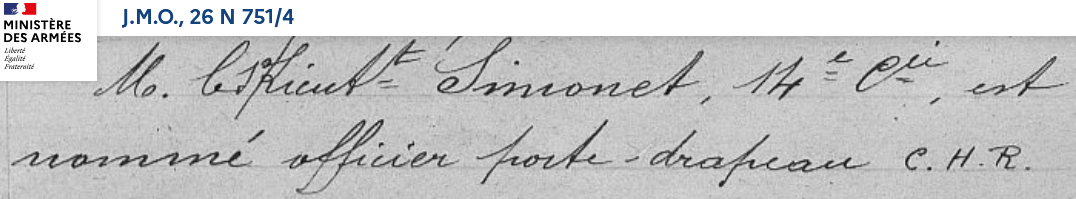 MINISTÈRE
DES ARMÉES
Liberté
Égalité
Fraternité
J.M.O., 26 N 751/4
M. le S/Lieutt Simonet, 14e Cie, est
nommé officier porte-drapeau C.H.R.